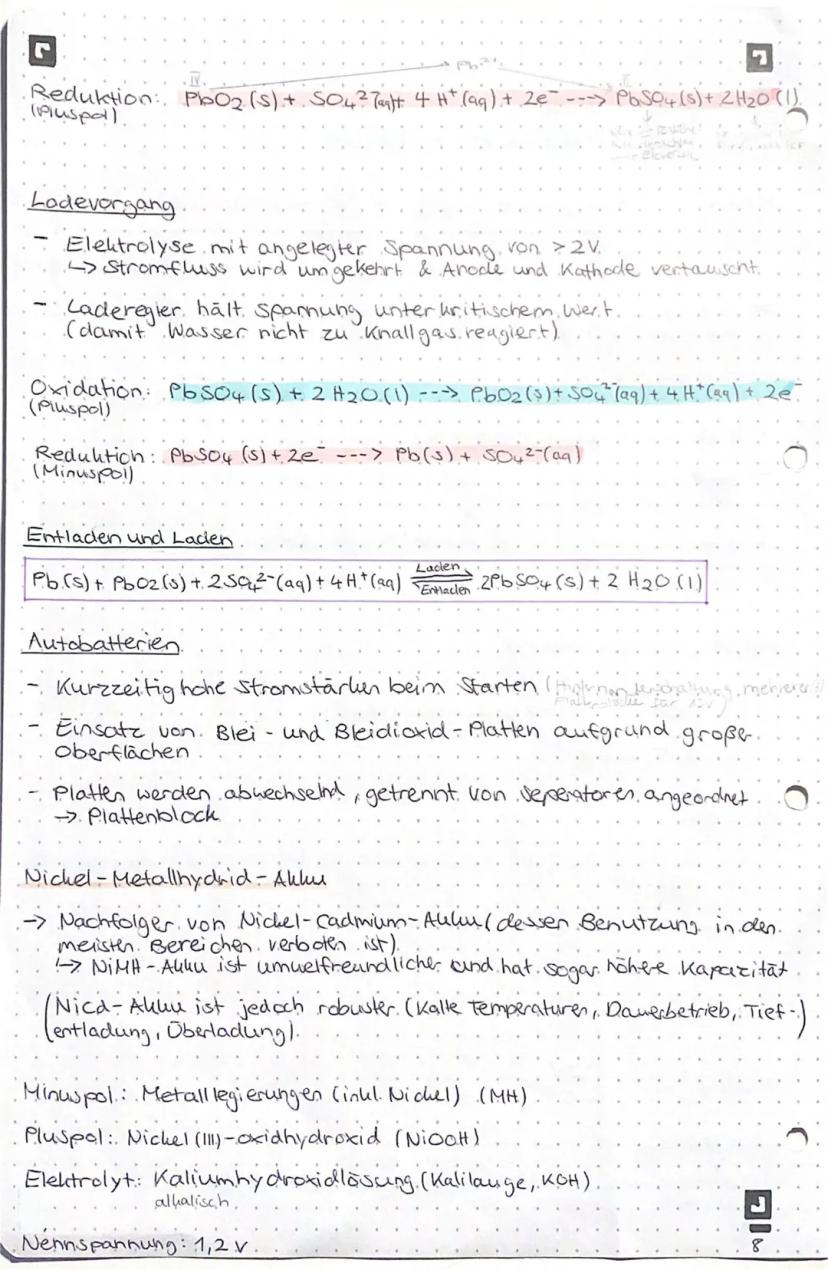 Pb²⁺
IV II
Reduktion: PbO2 (s) + SO4²⁻(aq)+ 4 H⁺ (aq) + 2e⁻ ---> PbSO4 (s) + 2H2O (l)
(Pluspol)
Ladevorgang
- Elektrolyse mit angelegter Spannung von > 2V
↳ Stromfluss wird umgekehrt & Anode und Kathode vertauscht
- Laderegler hält Spannung unter kritischem Wert
(damit Wasser nicht zu Knallgas reagiert)
Oxidation: PbSO4 (s) + 2 H2O (l) --> PbO2 (s) + SO4²⁻(aq) + 4 H⁺(aq) + 2e⁻
(Pluspol)
Reduktion: PbSO4 (s) + 2e⁻ ---> Pb(s) + SO4²⁻(aq)
(Minuspol)
Entladen und Laden
Laden
Pb (s) + PbO2 (s) + 2 SO4²⁻ (aq) + 4 H⁺ (aq) ⇌ 2PbSO4 (s) + 2 H2O (l)
Entladen
Autobatterien
- Kurzzeitig hohe Stromstärken beim Starten ( mehrerer
für 12V)
- Einsatz von Blei- und Bleidioxid-Platten aufgrund großer
Oberflächen
- Platten werden abwechselnd, getrennt von Seperatoren angeordnet
→ Plattenblock
Nickel-Metallhydrid-Akku
→ Nachfolger von Nickel-Cadmium-Akku (dessen Benutzung in den
meisten Bereichen verboten ist)
↳ NiMH-Akku ist umwelfreundlicher und hat sogar höhere Kapazität
(Nicd-Akku ist jedoch robuster (Kalte Temperaturen, Dauerbetrieb, Tief-
entladung, Überladung).)
Minuspol: Metalllegierungen (inkl. Nickel) (MH)
Pluspol: Nickel (III)-oxidhydroxid (NiOOH)
Elektrolyt: Kaliumhydroxidlössung (Kalilauge, KOH)
alkalisch
Nennspannung: 1,2 V
8